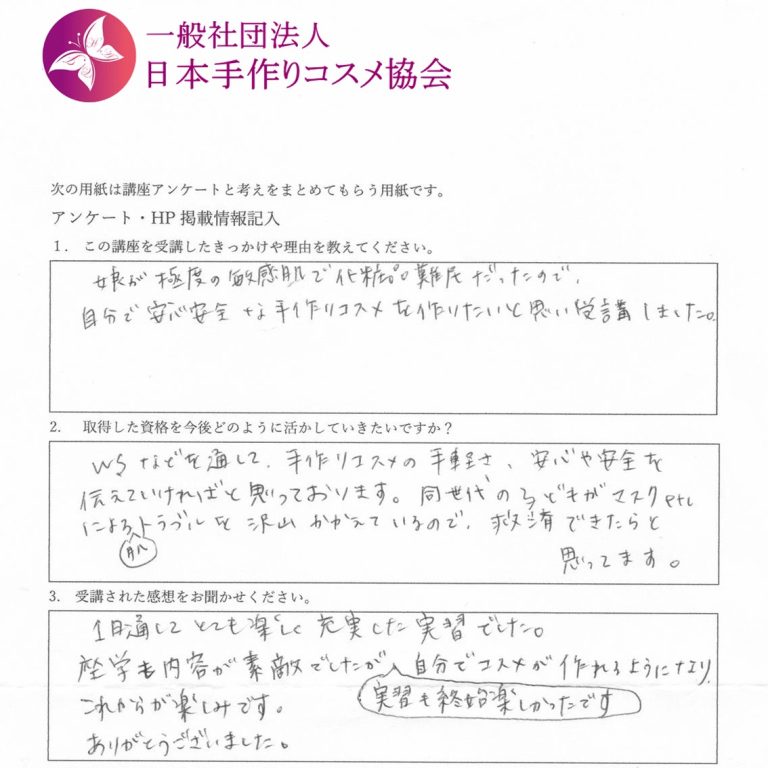 一般社団法人
日本手作りコスメ協会
次の用紙は講座アンケートと考えをまとめてもらう用紙です。
アンケート・HP 掲載情報記入
1. この講座を受講したきっかけや理由を教えてください。
娘が極度の敏感肌で化粧品難民だったので、
自分で安心安全な手作りコスメを作りたいと思い受講しました。
2. 取得した資格を今後どのように活かしていきたいですか？
WSなどを通して、手作りコスメの手軽さ、安心や安全を
伝えていければと思っております。同世代の子どもがマスクetc
による肌トラブルを沢山かかえているので、救済できたらと
思ってます。
3. 受講された感想をお聞かせください。
1日通してとても楽しく充実した実習でした。
座学も内容が素敵でしたが、自分でコスメが作れるようになり、
実習も終始楽しかったです
これからが楽しみです。
ありがとうございました。